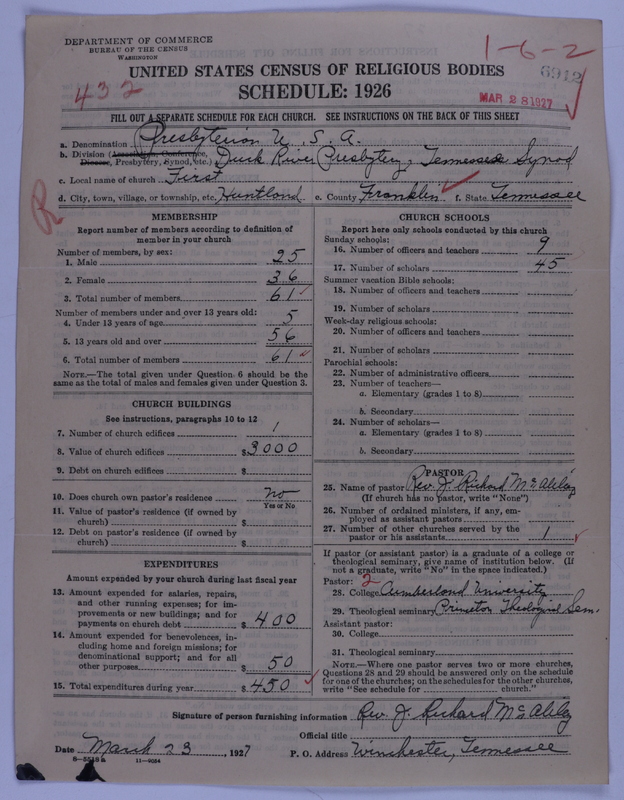 DEPARTMENT OF COMMERCE
BUREAU OF THE CENSUS
WASHINGTON
1-6-2
6912
432
UNITED STATES CENSUS OF RELIGIOUS BODIES
SCHEDULE: 1926
MAR 28 1927
FILL OUT A SEPARATE SCHEDULE FOR EACH CHURCH. SEE INSTRUCTIONS ON THE BACK OF THIS SHEET
a. Denomination Presbyterian U. S. A.
b. Division (Association, Conference, Diocese, Presbytery, Synod, etc.) Duck River Presbytery, Tennessee Synod
c. Local name of church First
d. City, town, village, or township, etc. Huntland e. County Franklin f. State Tennessee
R
MEMBERSHIP
Report number of members according to definition of
member in your church
Number of members, by sex:
1. Male 25
2. Female 36
3. Total number of members 61
Number of members under and over 13 years old:
4. Under 13 years of age 5
5. 13 years old and over 56
6. Total number of members 61
NOTE.—The total given under Question 6 should be
same as the total of males and females given under Question 3.
CHURCH BUILDINGS
See instructions, paragraphs 10 to 12
7. Number of church edifices 1
8. Value of church edifices $3000
9. Debt on church edifices $
10. Does church own pastor's residence no
Yes or No
11. Value of pastor's residence (if owned by
church) $
12. Debt on pastor's residence (if owned by
church) $
EXPENDITURES
Amount expended by your church during last fiscal year
13. Amount expended for salaries, repairs,
and other running expenses; for im-
provements or new buildings; and for
payments on church debt $400
14. Amount expended for benevolences, in-
cluding home and foreign missions; for
denominational support; and for all
other purposes $50
15. Total expenditures during year $450
CHURCH SCHOOLS
Report here only schools conducted by this church
Sunday schools:
16. Number of officers and teachers 9
17. Number of scholars 45
Summer vacation Bible schools:
18. Number of officers and teachers
19. Number of scholars
Week-day religious schools:
20. Number of officers and teachers
21. Number of scholars
Parochial schools:
22. Number of administrative officers
23. Number of teachers—
a. Elementary (grades 1 to 8)
b. Secondary
24. Number of scholars—
a. Elementary (grades 1 to 8)
b. Secondary
PASTOR
25. Name of pastor Rev. J. Richard
(If church has no pastor, write "None")
26. Number of ordained ministers, if any, em-
ployed as assistant pastors
27. Number of other churches served by the
pastor or his assistants 1
If pastor (or assistant pastor) is a graduate of a college or
theological seminary, give name of institution below. (If
not a graduate, write "No" in the space indicated.)
Pastor: 2
28. College Cumberland University
29. Theological seminary Princeton Theological Sem.
Assistant pastor:
30. College
31. Theological seminary
NOTE.—Where one pastor serves two or more churches,
Questions 28 and 29 should be answered only on the schedule
for one of the churches; on the schedules for the other churches,
write "See schedule for church."
Signature of person furnishing information Rev. J. Richard
Official title
Date March 23, 1927 P. O. Address Winchester, Tennessee
11—9024